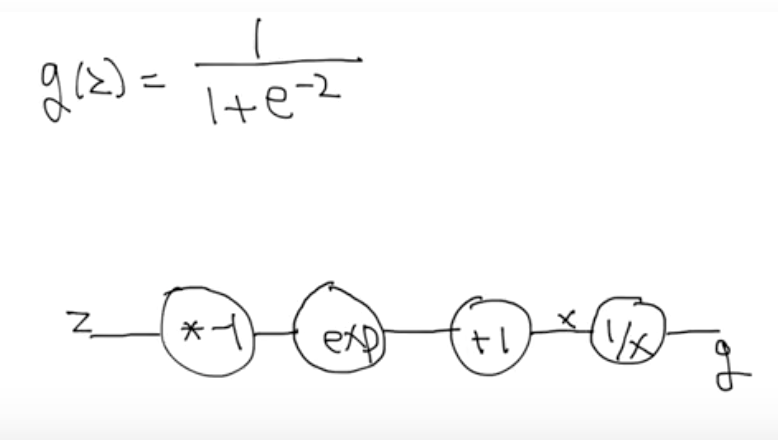 g(z) = 1 / (1+e^-z)
z *-1 exp +1 x 1/x g